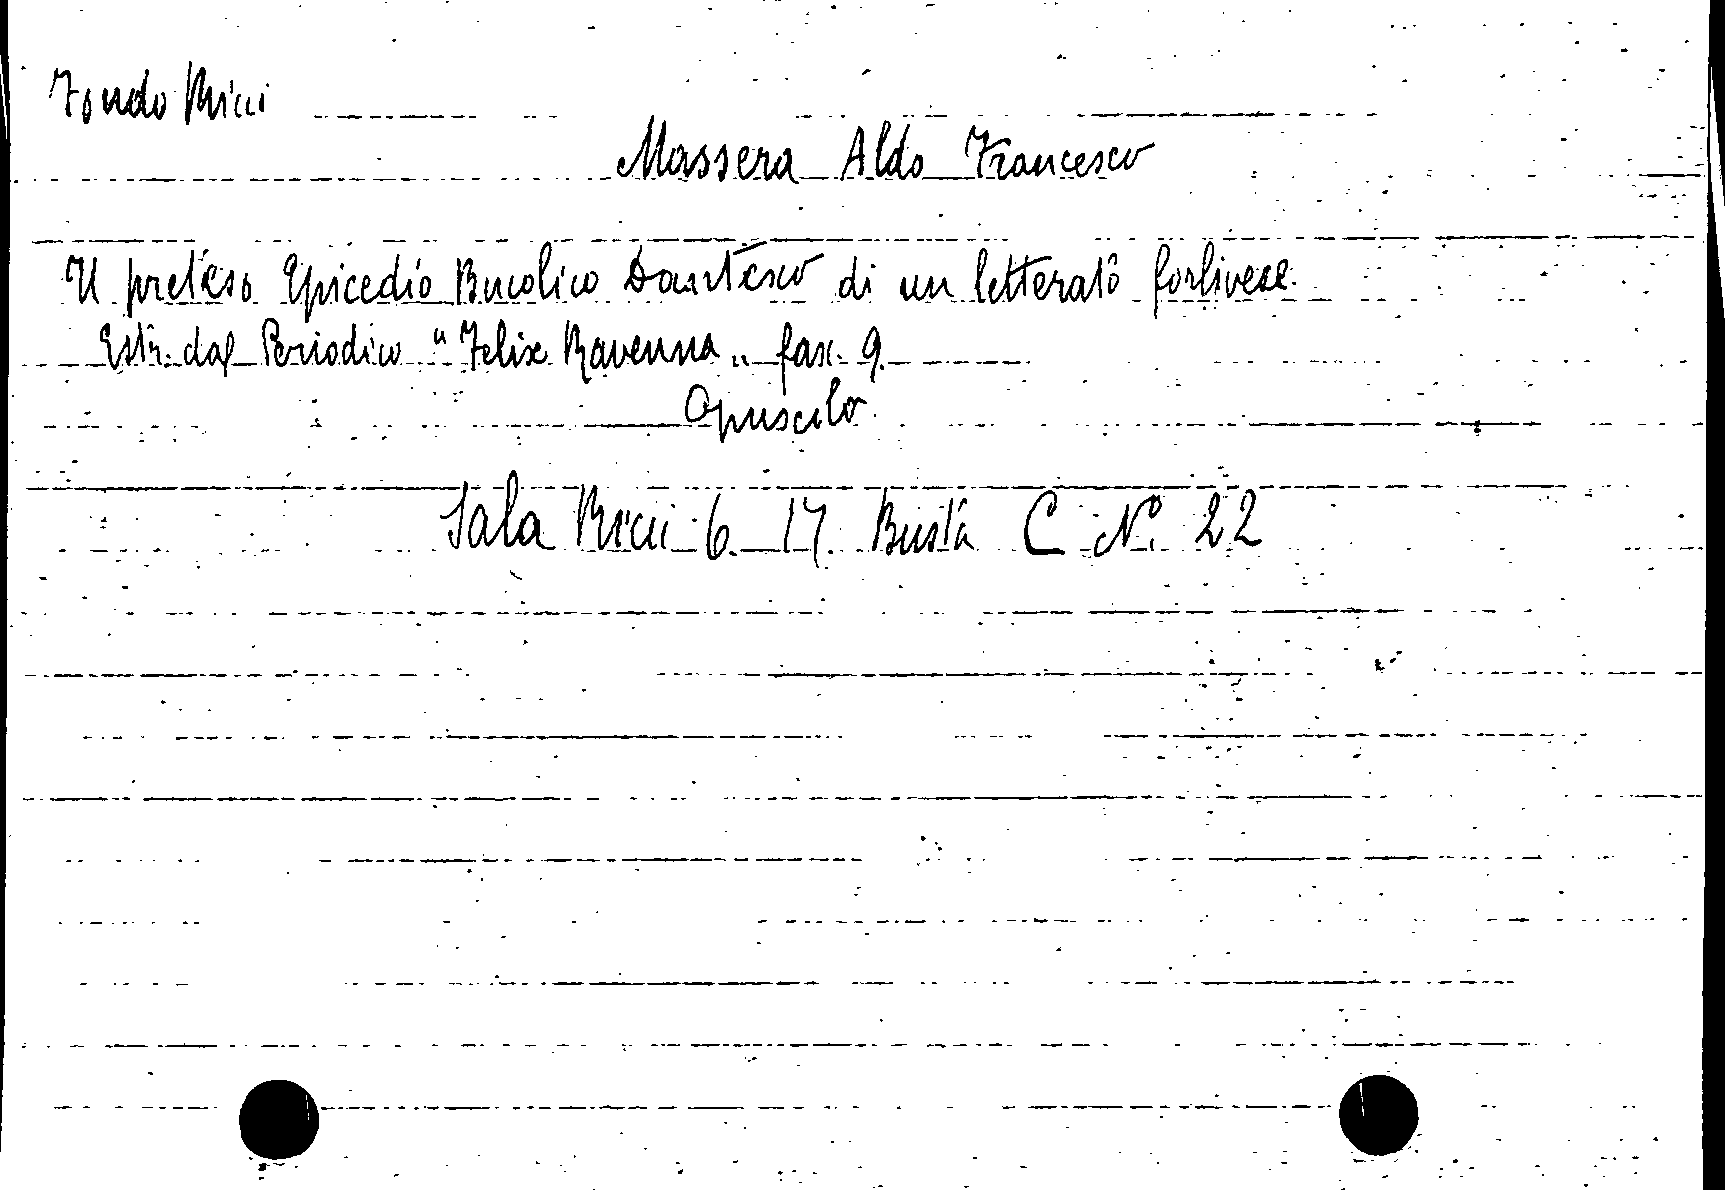 Fondo Ricci
Massera Aldo Francesco
Il preteso Epicedio Bucolico Dantesco di un letterato forlivese.
Estr. dal Periodico "Felix Ravenna" fasc. 9.
Opuscolo
Sala Ricci 6. 17. Busta C N. 22